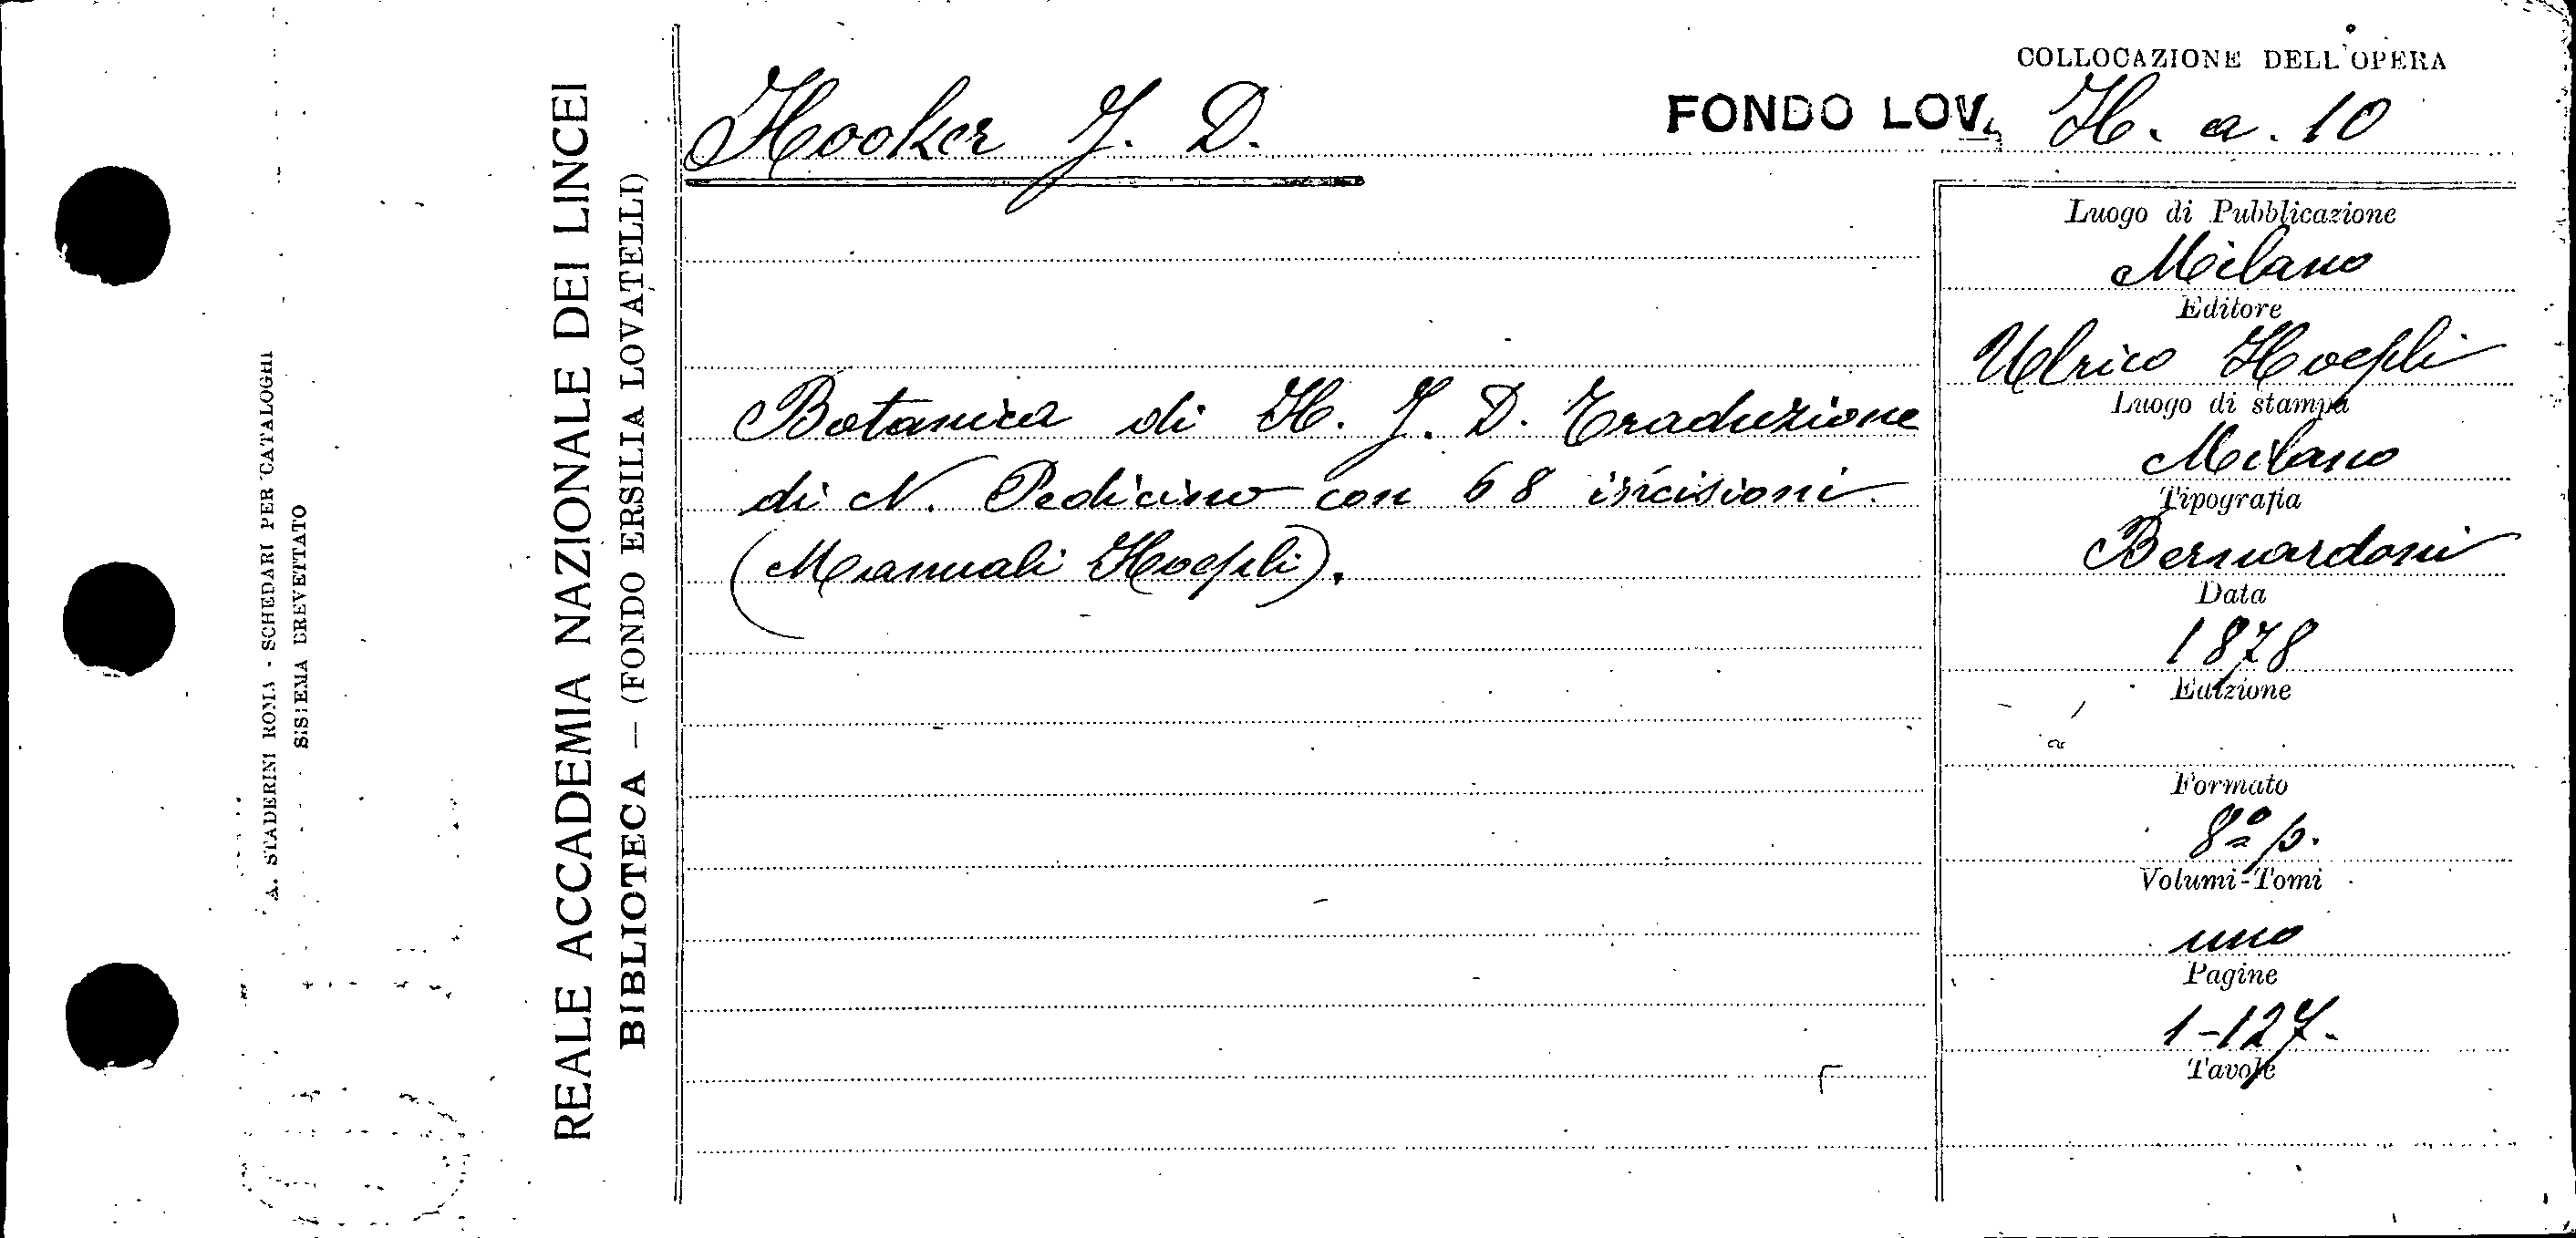 A. STADERINI ROMA - SCHEDARI PER CATALOGHI
SISTEMA BREVETTATO
REALE ACCADEMIA NAZIONALE DEI LINCEI
BIBLIOTECA — (FONDO ERSILIA LOVATELLI)
COLLOCAZIONE DELL'OPERA
FONDO LOV. H. a. 10
Hooker J. D.
Botanica di H. J. D. Traduzione
di N. Pedicino con 68 incisioni.
(Manuali Hoepli).
Luogo di Pubblicazione
Milano
Editore
Ulrico Hoepli
Luogo di stampa
Milano
Tipografia
Bernardoni
Data
1878
Edizione
Formato
8º p.
Volumi-Tomi
uno
Pagine
1-127.
Tavole